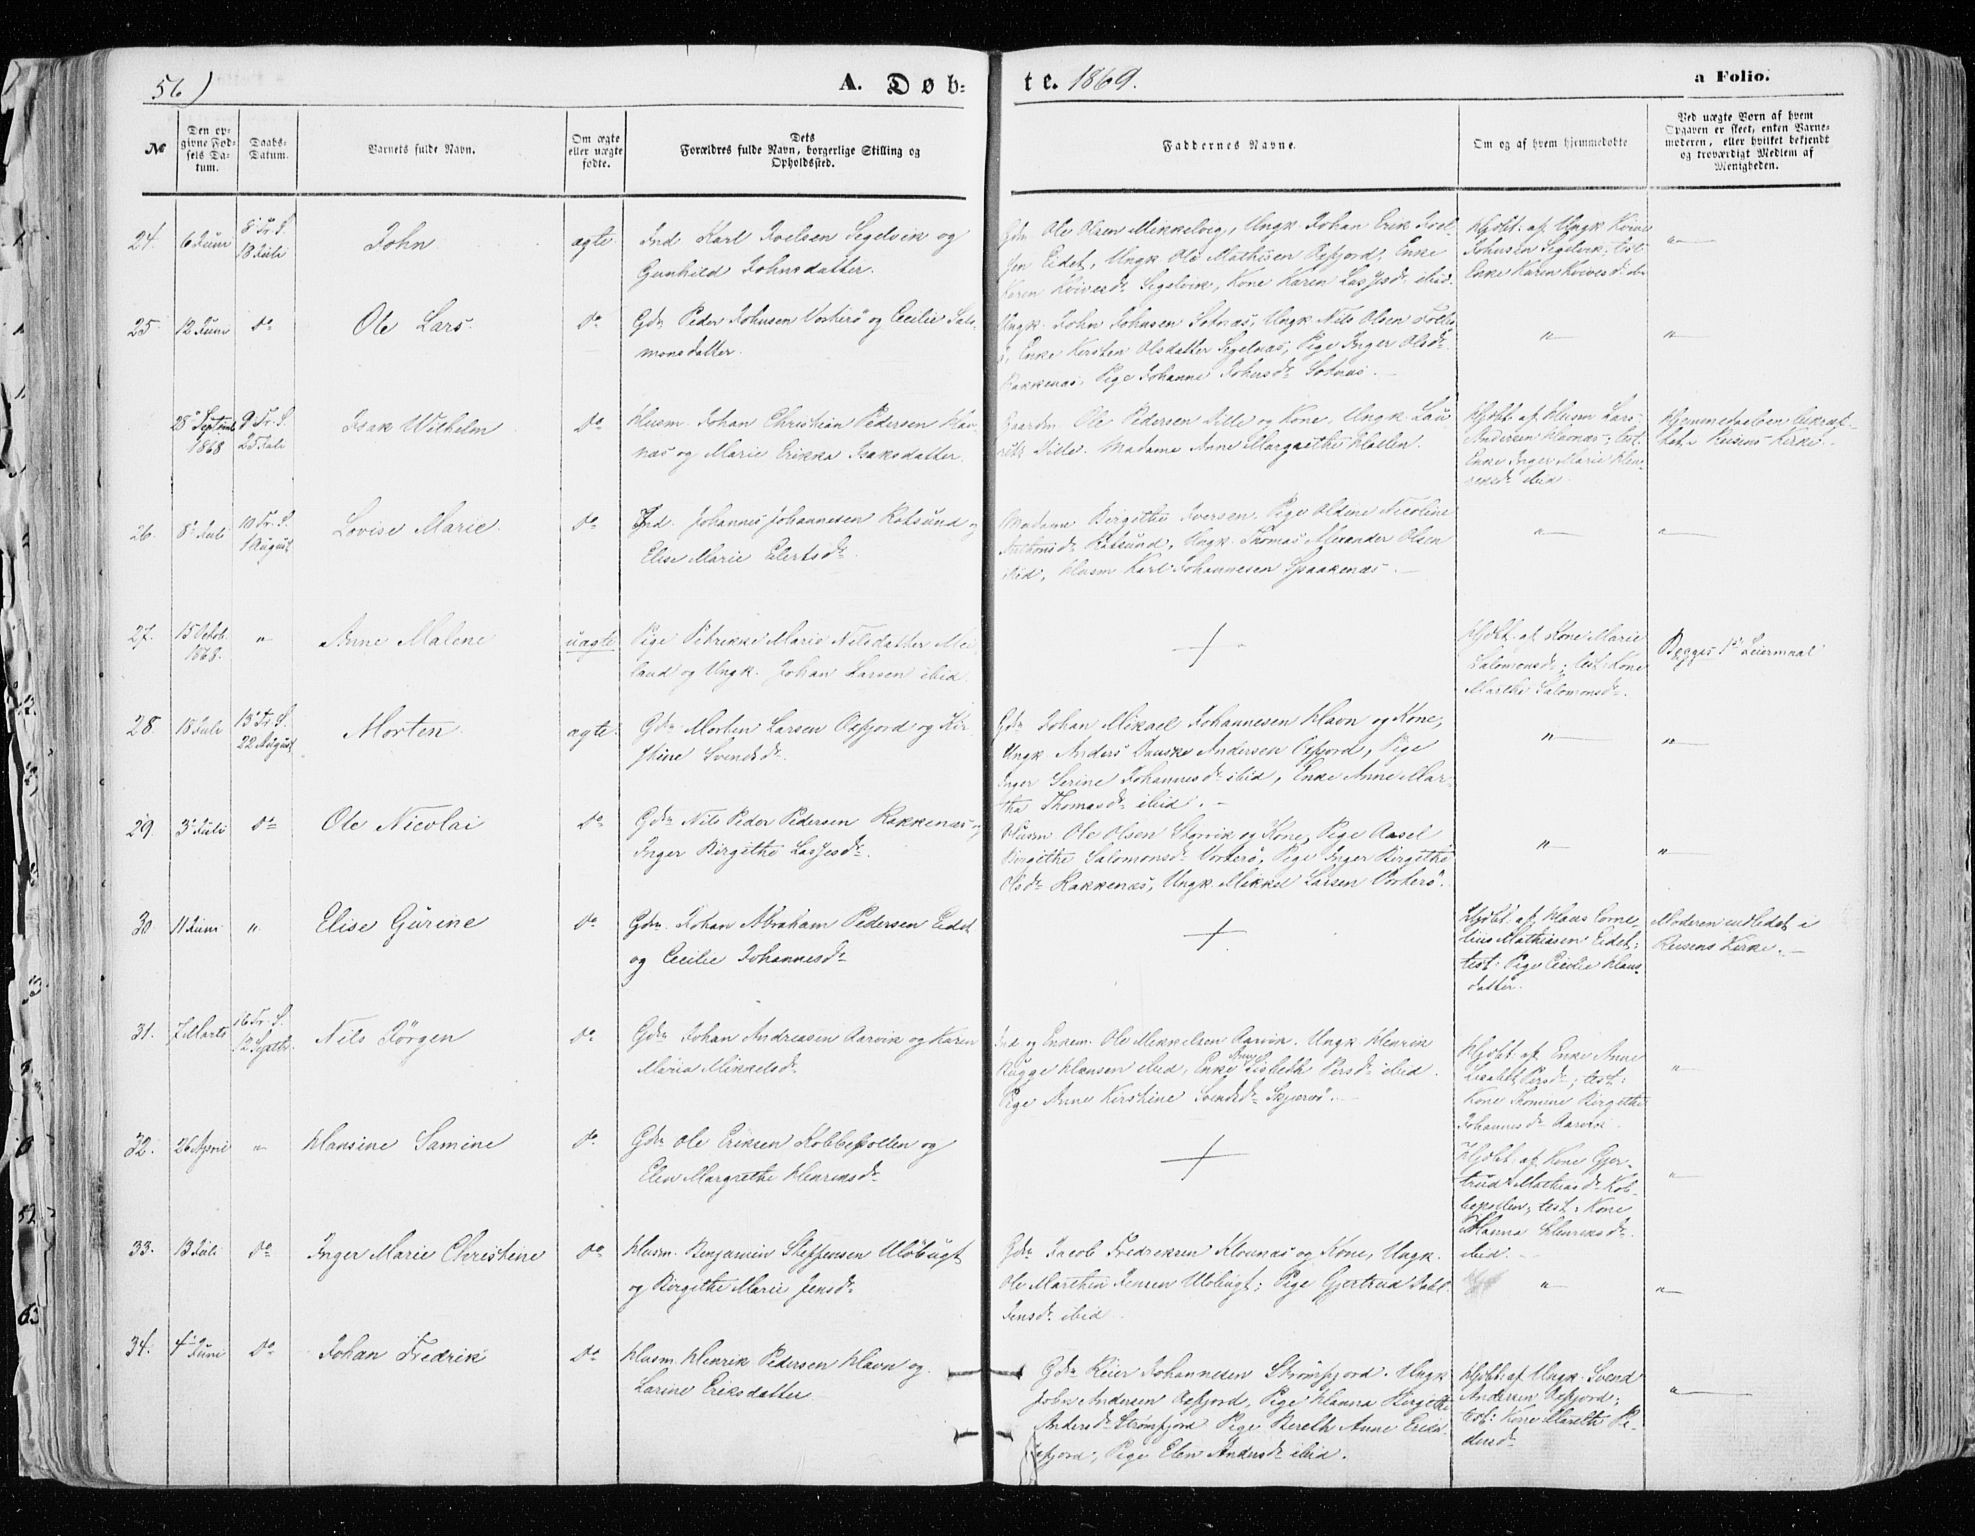 56)
A. Døb-
te. 1869.
a Folio.
№
Den op-
givne Fød-
sels Da-
tum.
Daabs-
Datum.
Barnets fulde Navn.
Om ægte
eller uægte
fødte.
Dets
Forældres fulde Navn, borgerlige Stilling og
Opholdssted.
Faddernes Navne.
Om og af hvem hjemmedøbte
Ved uægte Børn af hvem
Opgaven er skeet, enten Barne-
moderen, eller hvilket bekjendt
og troværdigt Medlem af
Menigheden.
24.
6 Juni
8' Tr. S.
18 Juli
John
ægte
Ind. Karl Joelsen Segelvik og
Gunhild Johnsdatter.
Gdm Ole Olsen Mikkelvig, Ungk. Johan Erik Joel-
sen Eidet, Ungk Ole Mathisen Oxfjord, Enke
Karen Segelvik, Kone Karen ibid.
Hjdbt. af Ungk
Johnsen Segelvik; test:
Enke Karen
"
25.
12 Juni
do
Ole Lars.
do
Gdm Peder Johnsen Vorterö og Cecilie Salo-
monsdatter.
Ungk. John Johnsen Sotnæs, Ungk Nils Olsen
Enke Kirsten Olsdatter Segelnæs, Pige Inger Olsdr
Rakkenæs, Pige Johanne Johnsdr Sotnæs.
"
"
28' Septemb
1868
9 Tr. S.
25 Juli
Isak Wilhelm
do
Husm. Johan Christian Pedersen Hav-
næs og Marie Erikka Isaksdatter.
Gaardm. Ole Pedersen Lille og Kone, Ungk. Lau-
Lille, Madame Anne Margrethe
Hjdbt. af Husm Lars
Andersen Havnæs; test.
Enke Inger Marie Hen-
riksdr ibid.
Hjemmedaaben
Reisens Kirke.
26.
8' Juli
10 Tr. S.
1 August
Lovise Marie
do
Ind. Johannes Johannesen Rotsund og
Elise Marie Eilertsdr.
Madame Birgithe Iversen, Pige Oldine Nicoline
Anthonsdr Rotsund, Ungk. Thomas Alexander Olsen
ibid, Husm Karl Johannesen Spaakenæs.
"
"
27.
15 Octob.
1868.
"
Anne Malene
uægte
Pige Petrikke Marie Nilsdatter Mei-
land og Ungk. Johan Larsen ibid.
+
Hjdbt. af Kone Marie
Salomonsdr; test: Kone
Marthe Salomonsdr.
Begges 1' Leiermaal
28.
18 Juli
13' Tr. S.
22 August
Morten
ægte.
Gdm Morten Larsen Oxfjord og Kir-
stine Svendsdr.
Gdm Johan Mikael Johannesen Havn og Kone,
Ungk Anders Andersen Oxfjord, Pige
Inger Serine Johannesdr ibid, Enke Anne Mar-
tha Thomasdr ibid.
"
"
29.
3' Juli
do
Ole Nicolai
do
Gdm Nils Peder Pedersen Rakkenæs og
Inger Birgithe Lassesdr.
Husm Ole Olsen Storvik og Kone, Pige Aasel
Birgithe Salomonsdr Vorterö, Pige Inger Birgithe
Olsdr Rakkenæs, Ungk. Mikkel Larsen Vorterö.
"
"
30.
11 Juni
"
Elise Gurine
do
Gdm. Johan Abraham Pedersen Eidet
og Cecilie Johannesdr
+
Hjdbt. af Klaus Corne-
lius Mathiasen Eidet;
test: Pige Cecilia Klaus-
datter.
Moderen indledet i
Reisens Kirke.
31.
7 Marts
16 Tr. S.
12 Septbr.
Nils Jörgen
do
Gdm Johan Andreasen Aarvik og Karen
Maria Mikkelsdr.
Ind og Enkem. Ole Mikkelsen Aarvik, Ungk Henrik
Hansen ibid, Enke Anne Lisbeth Persdr ibid.
Pige Anne Kirstine Svendsdr Skjervö.
Hjdbt. af Enke Anne
Lisabeth Persdr; test:
Kone Thomine Birgithe
Johannesdr Aarvik.
"
32.
26 April
"
Hansine Samine
do
Gdm Ole Eriksen Kobbepollen og
Elen Margrethe Henriksdr
+
Hjdbt af Kone Gjer-
trud Mathiasdr Kob-
bepollen; test: Kone
Hanna Henriksdr
ibid.
"
33.
13 Juli
do
Inger Marie Christine
do
Husm. Benjamin Steffensen Ulöbugt
og Birgithe Marie Jensdr
Gdm Jacob Fredriksen Klovnæs og Kone, Ungk.
Ole Marthin Jensen Ulöbugt; Pige Gjertrud
Jensdr ibid.
"
"
34.
4' Juni
do
Johan Fredrik
do
Husm. Henrik Pedersen Havn og
Larine Eriksdatter
Gdm Johannesen Strömfjord. Ungk
John Andersen Oxfjord, Pige Hanna Birgithe
Andersdr Strömfjord Pige Bereth Anne
Oxfjord, Pige Elen Andersdr ibid.
Hjdbt: af Ungk. Svend
Andersen Oxfjord;
test: Kone Mareth Pe-
dersdr
"